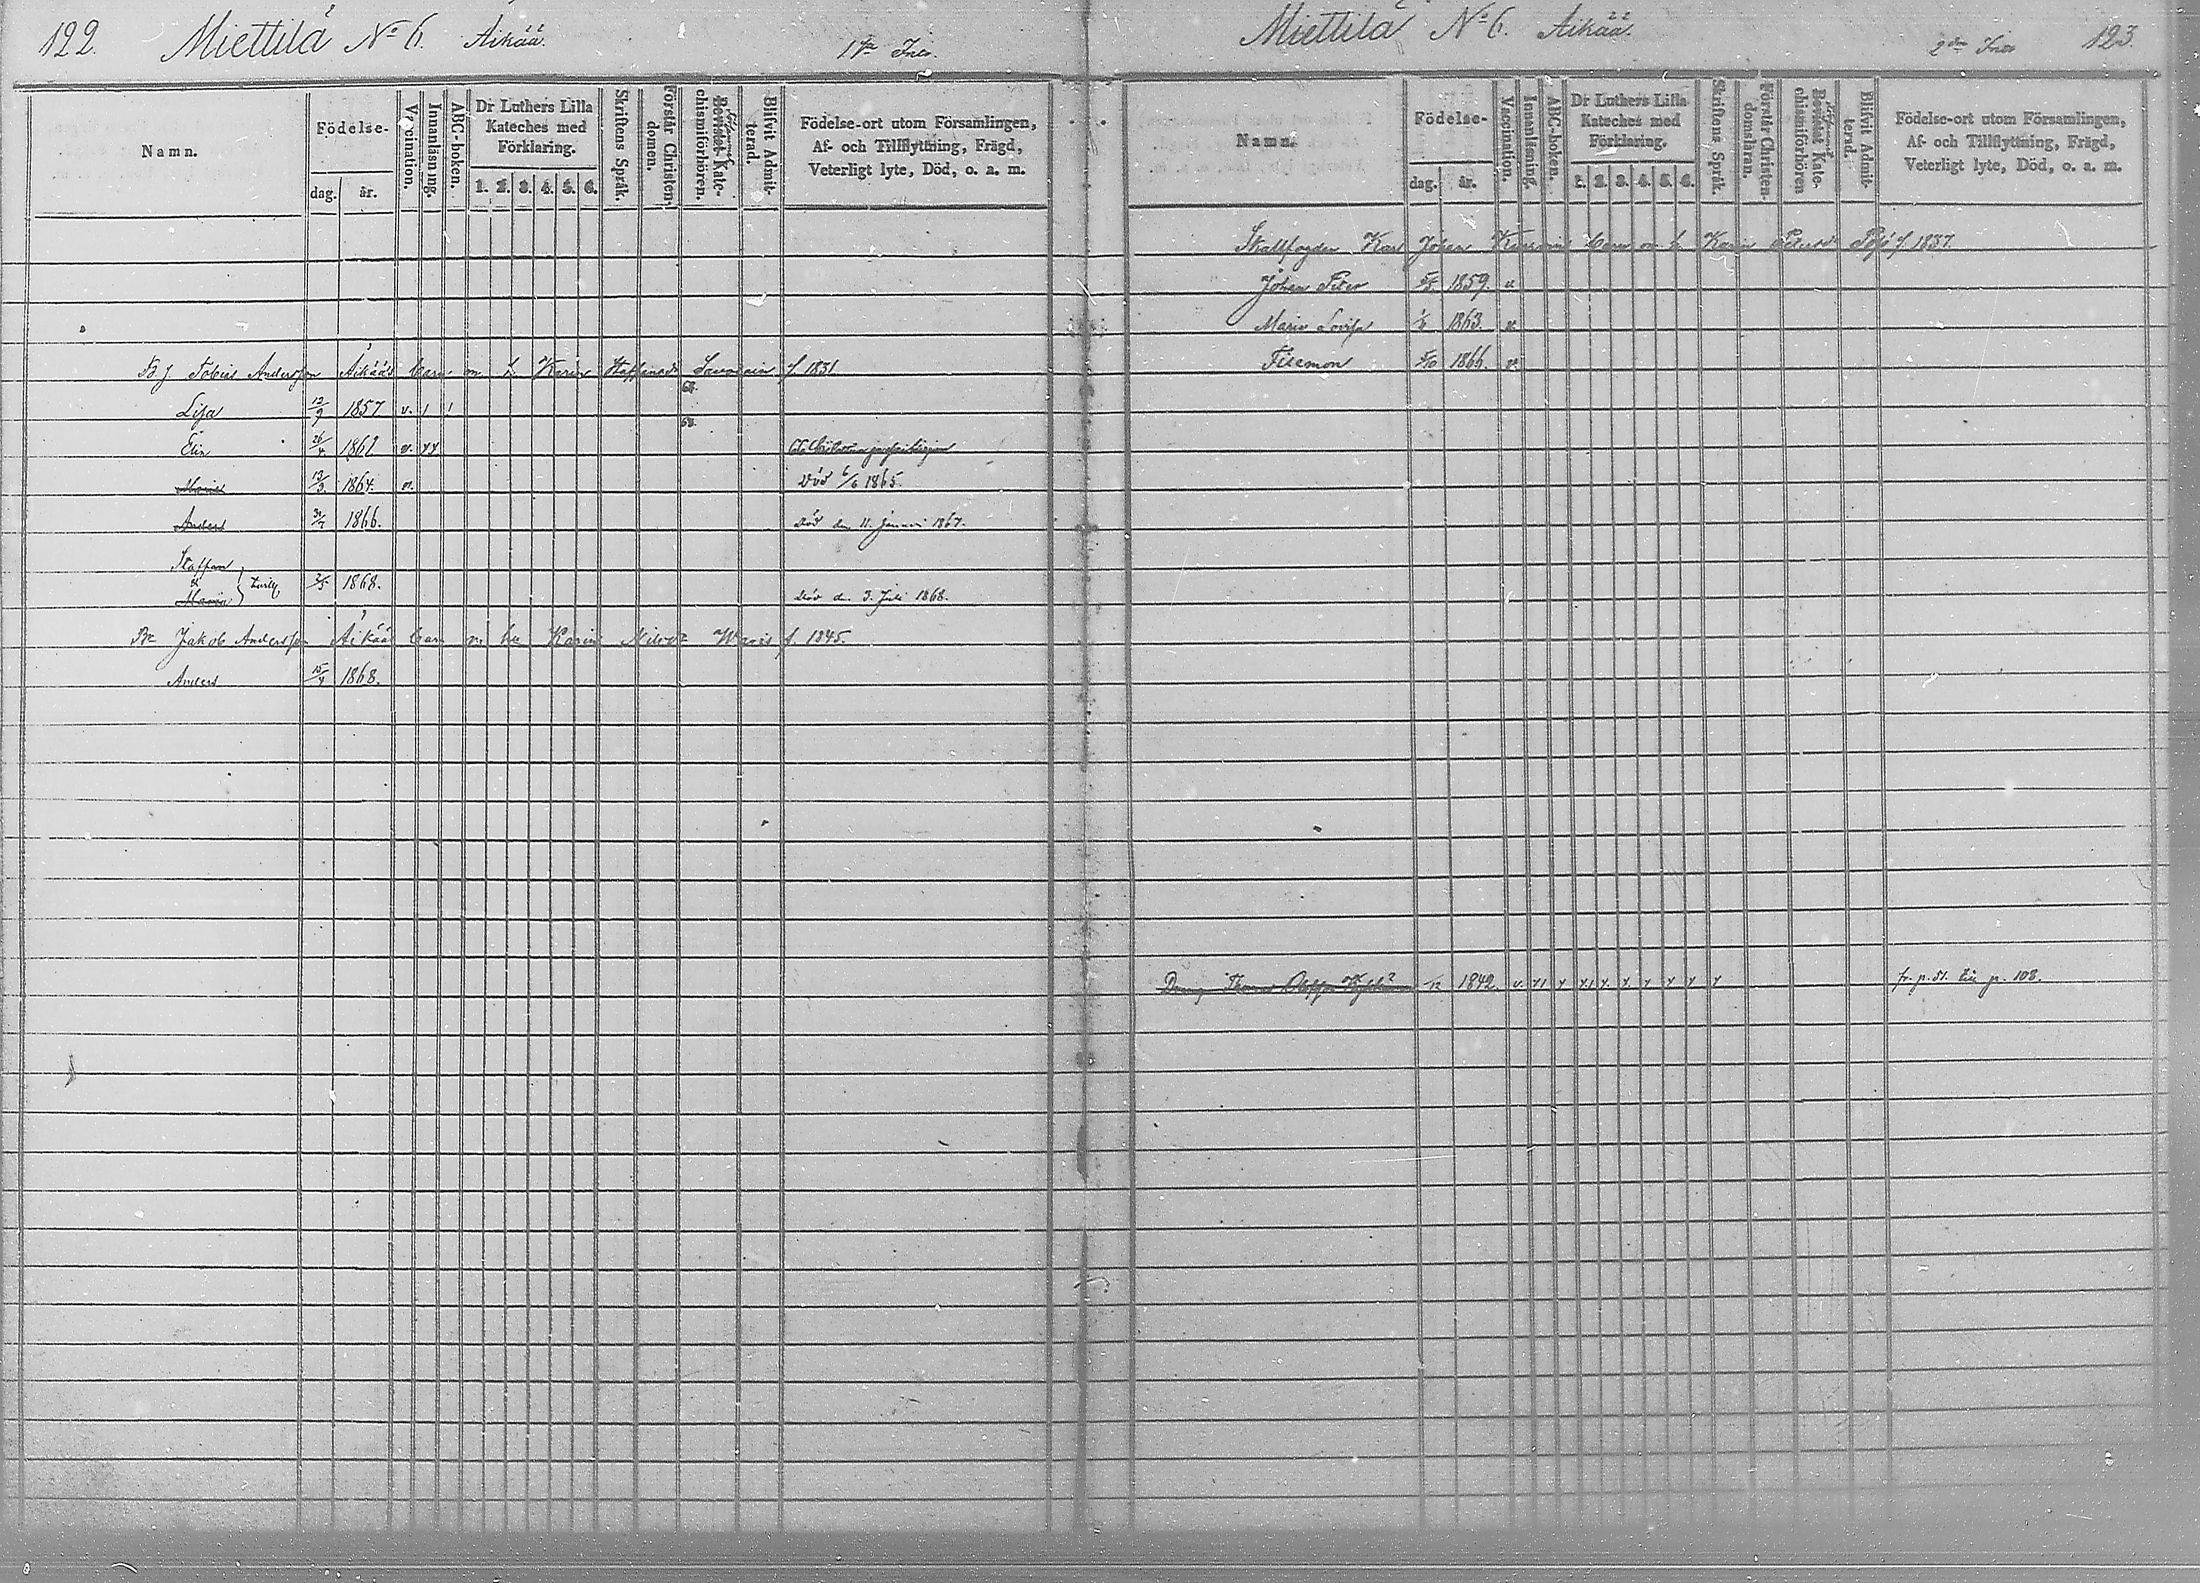 122. Miettilä No 6. Äikää. 1sta
Namn. Födelse- dag. år. Vaccination. Innanläsning. ABC-boken. Dr Luthers Lilla Kateches med Förklaring. 1. 2. 3. 4. 5. 6. Skriftens Språk. Förstår Christen-domen. Bevistat Kate-chismiförhören. Blifvit Admit-terad. Födelse-ort utom Församlingen, Af- och Tillflyttning, Frägd, Veterligt lyte, Död, o. a. m.
Tobias Andersson Äikääs barn m. h. Karin Staffansdr f. 1831
68.
Lisa 12/9 1857 v. 1 1
68.
Elin 26/4 1862 v. YY
Maria 12/3 1864. v. Död 6/6 1865.
Anders 31/7 1866. Död den 11. januari 1867.
Staffan
&
Maria 1868. Död d. 3. Juli 1868.
Jakob Andersson Äikää barn m. hu Karin f. 1845.
Anders 15/4 1868.
Miettilä No 6. Äikää. 2dra 123.
Namn. Födelse- dag. år. Vaccination. Innanläsning. ABC-boken. Dr Luthers Lilla Kateches med Förklaring. 1. 2. 3. 4. 5. 6. Skriftens Språk. Förstår Christen-domsläran. Bevistat Kate-chismiförhören Blifvit Admit-terad. Födelse-ort utom Församlingen, Af- och Tillflyttning, Frägd, Veterligt lyte, Död, o. a. m.
Karl Johan barn m. h. Karin f. 1837.
Johan Peter 1859. v.
Maria Lovisa 1863. v.
Filemon 1866. v.
Thomas 1842. v. fr. p. 51. till p. 108.